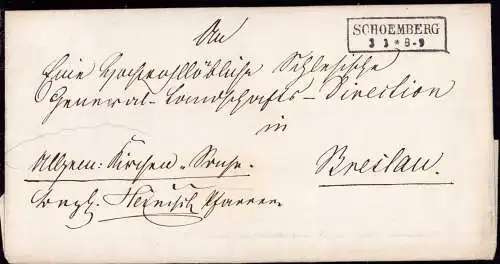 An
SCHOEMBERG
3 3 * 8-9
Eine Hochwohllöbliche Schlesische
General-Landschafts-Direction
in
Allgem: Kirchen-Sache.
Breslau.
Pfarrer